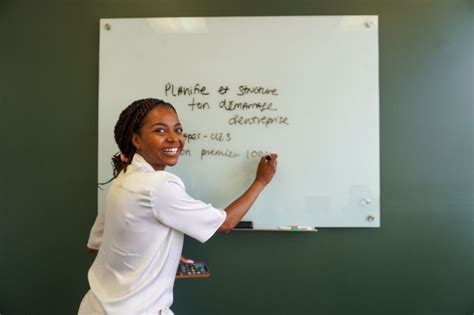 Planifie et structure
ton démarrage
d'entreprise
apes-clés
on premier 100